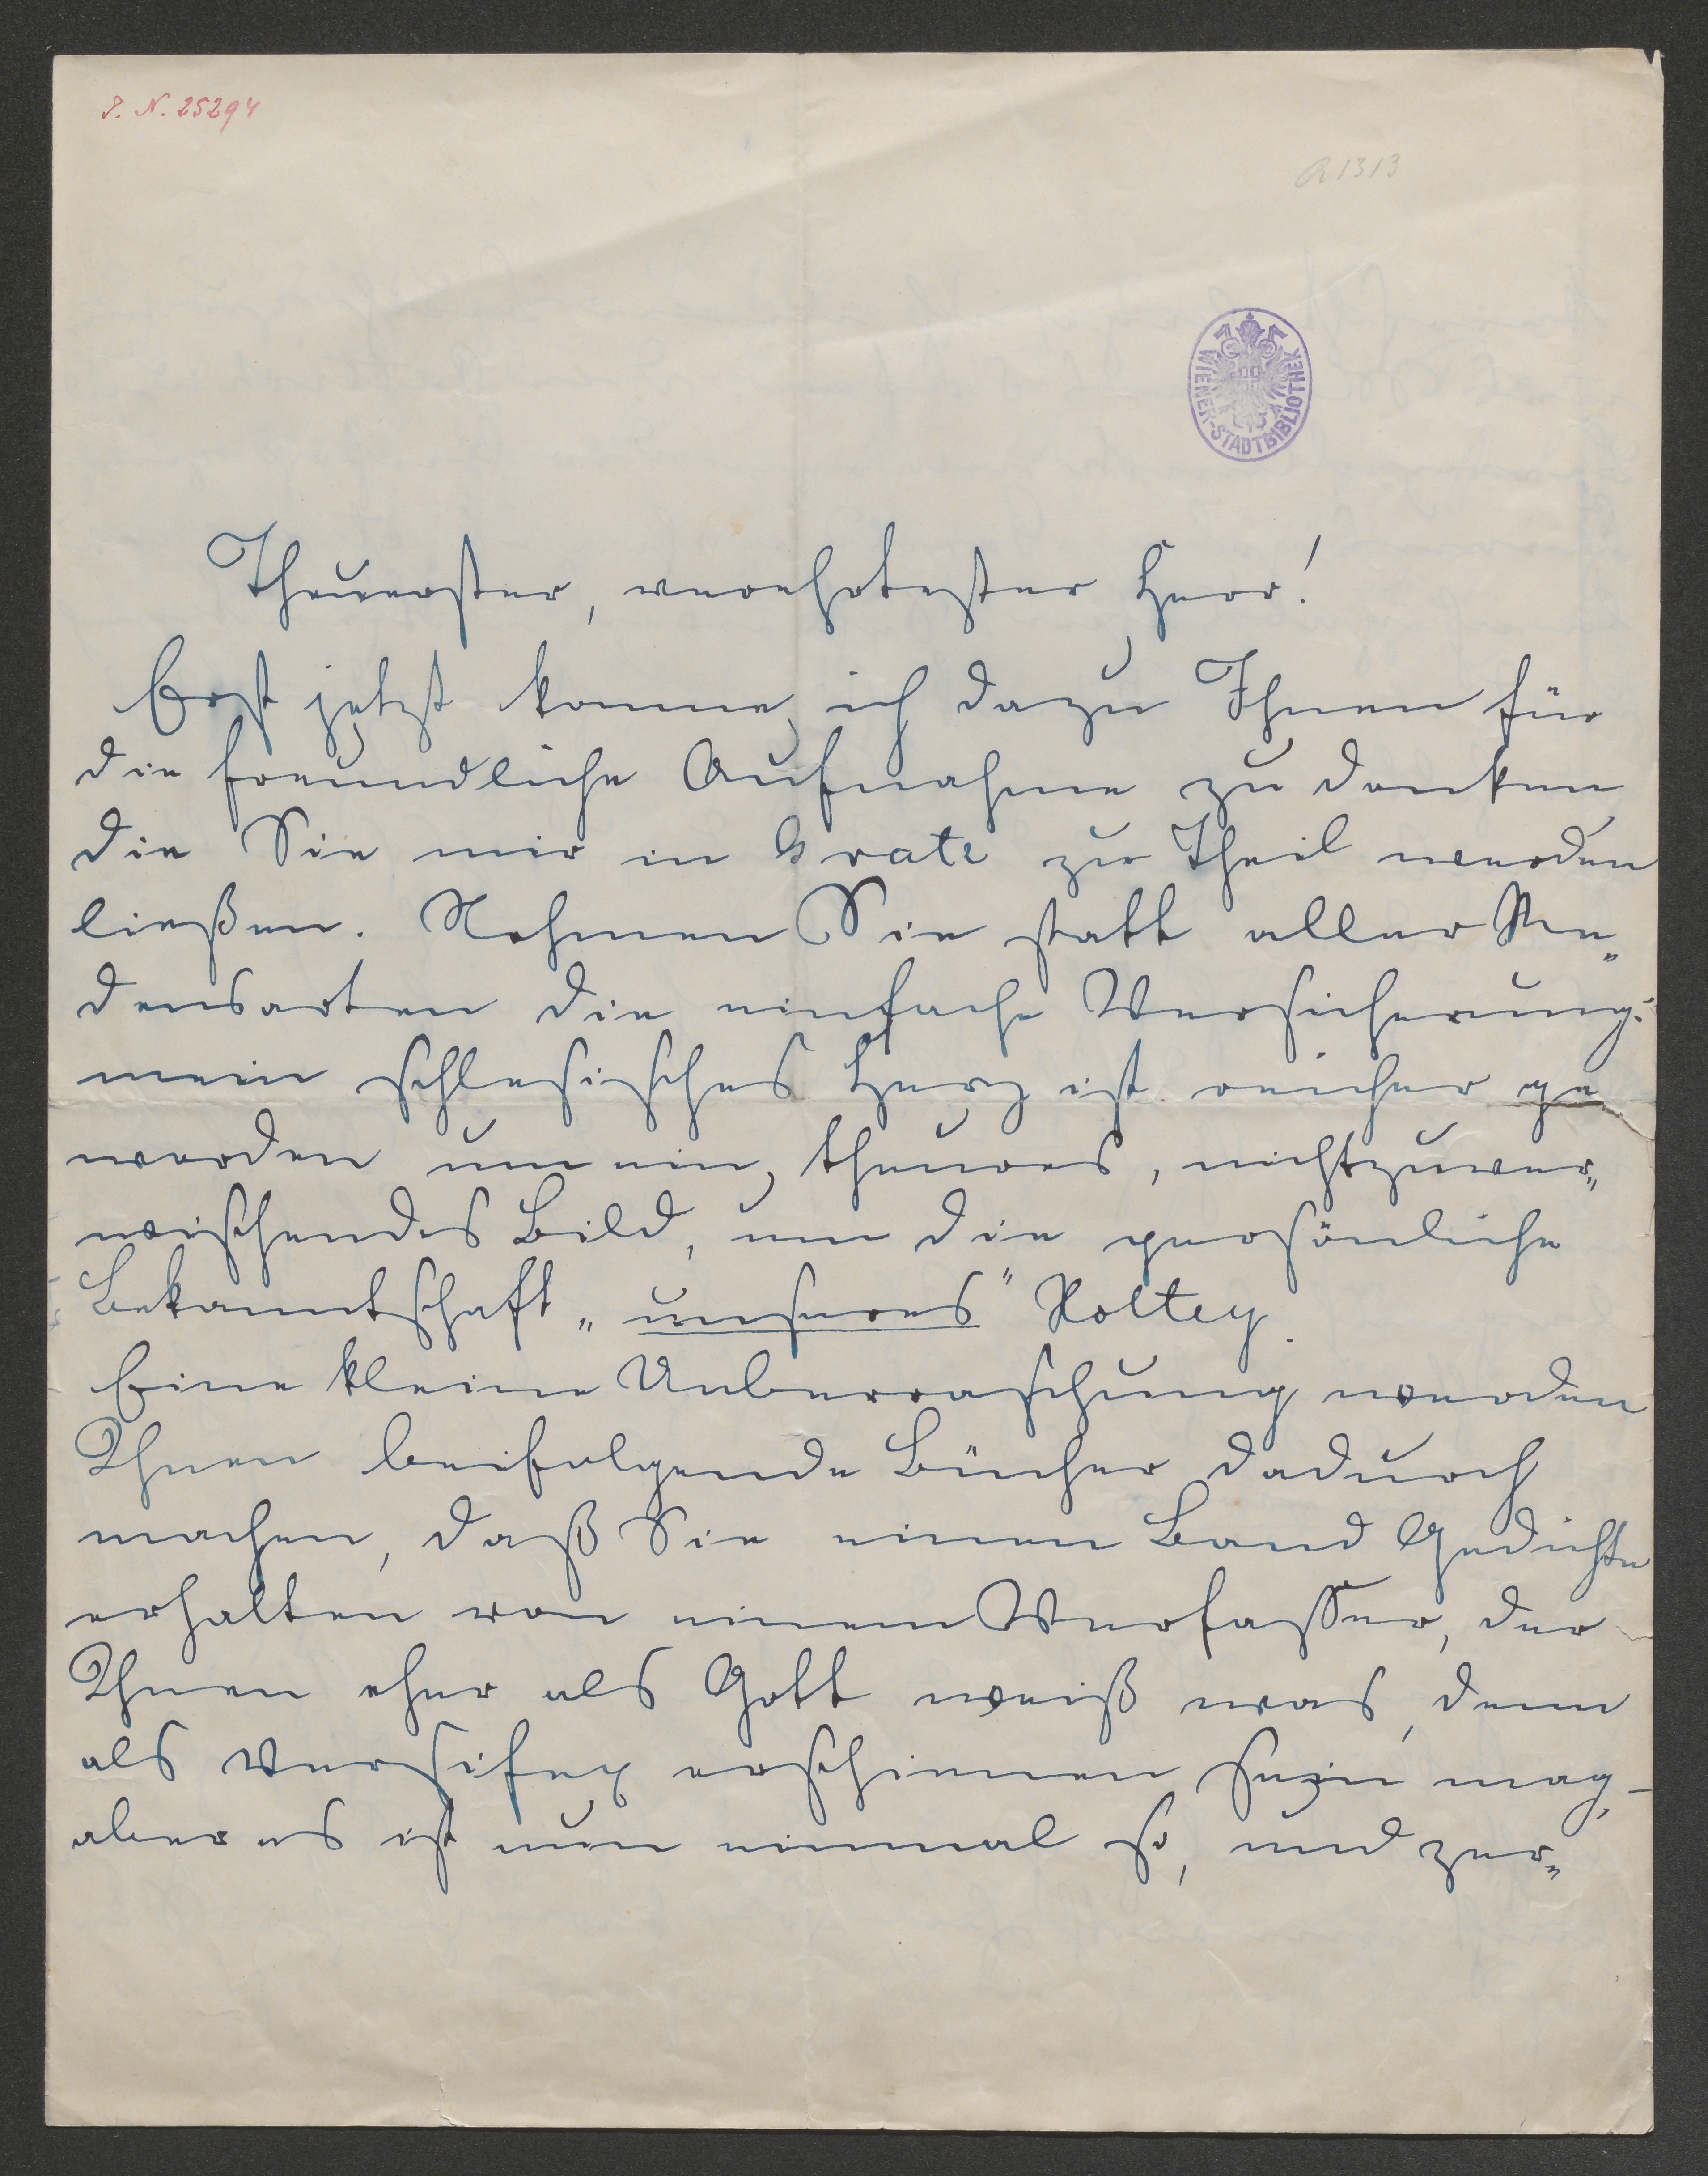 I. N. 25294
R 1313
WIENER-STADTBIBLIOTHEK
Theuerster, verehrtester Herr!
Erst jetzt komme ich dazu Ihnen für
die freundliche Aufnahme zu danken
die Sie mir in Gratz zu Theil werden
ließen. Nehmen Sie statt aller Re„
densarten die einfache Versicherung:
mein schlesisches Herz ist reicher ge
worden um ein, theures, nichtzuver„
wischendes Bild, um die persönliche
Bekanntschaft „unseres" Holtey.
Eine kleine Ueberraschung werden
Ihnen beifolgende Bücher dadurch
machen, daß Sie einen Band Gedichte
erhalten von einem Verfasser, der
Ihnen eher als Gott weiß was, denn
als Versifex erschienen sein mag –
aber es ist nun einmal so, und zer„